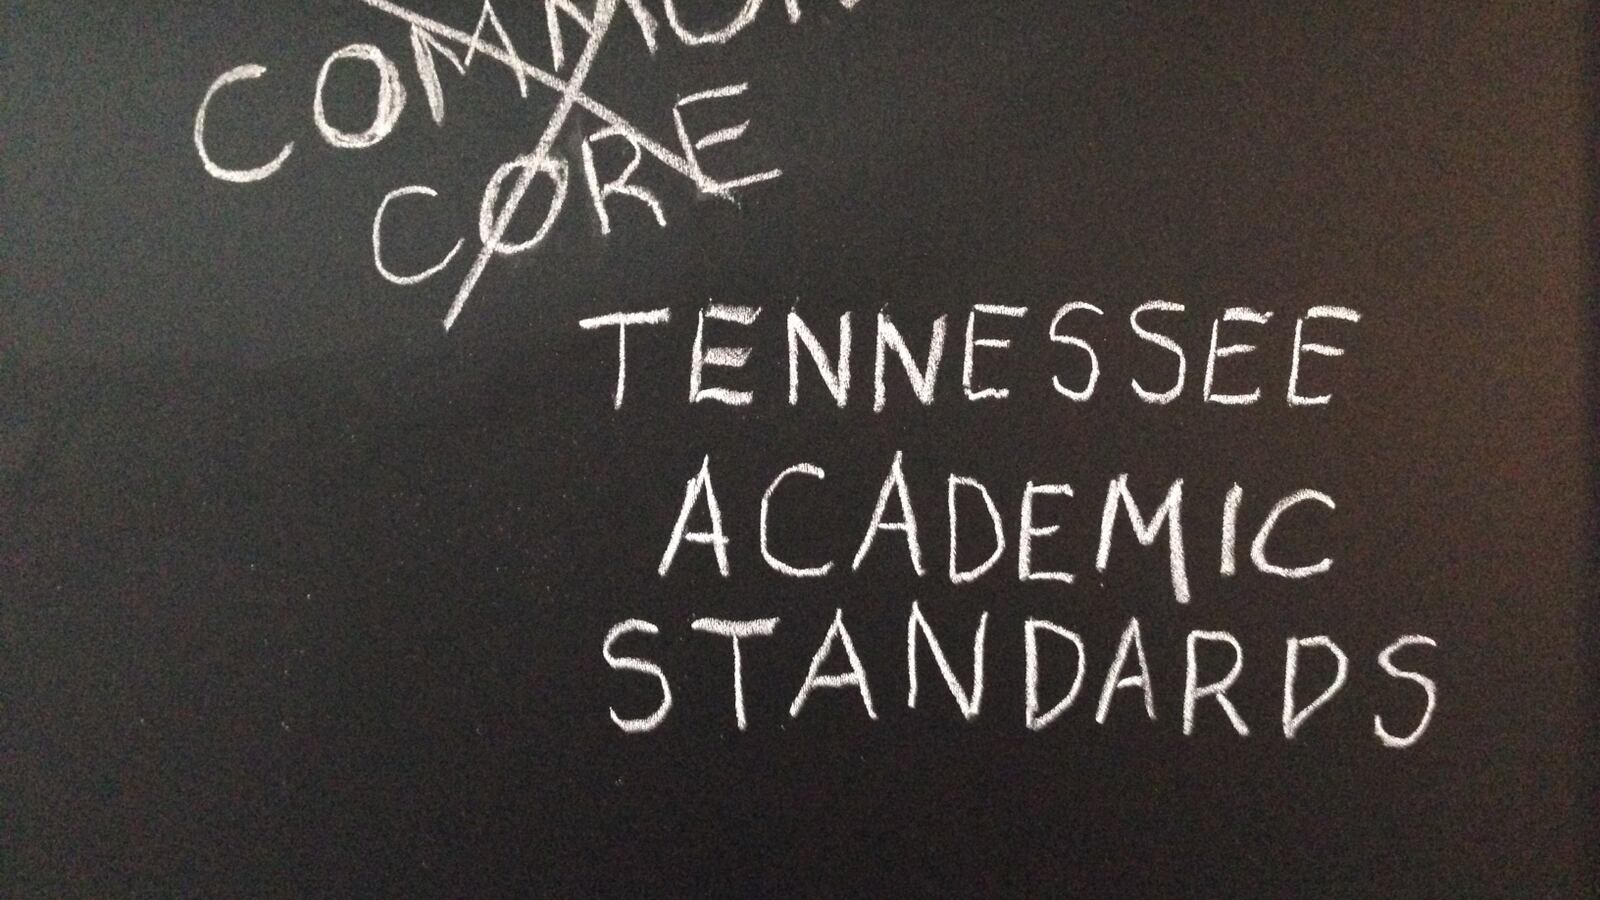 COMMON
CORE
TENNESSEE
ACADEMIC
STANDARDS